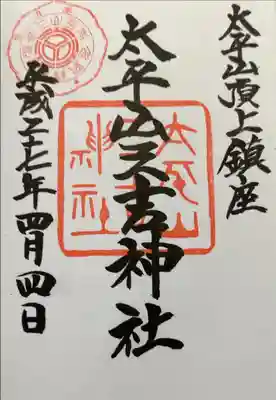 太平山頂上鎮座
太平山三吉神社
平成二十七年四月四日